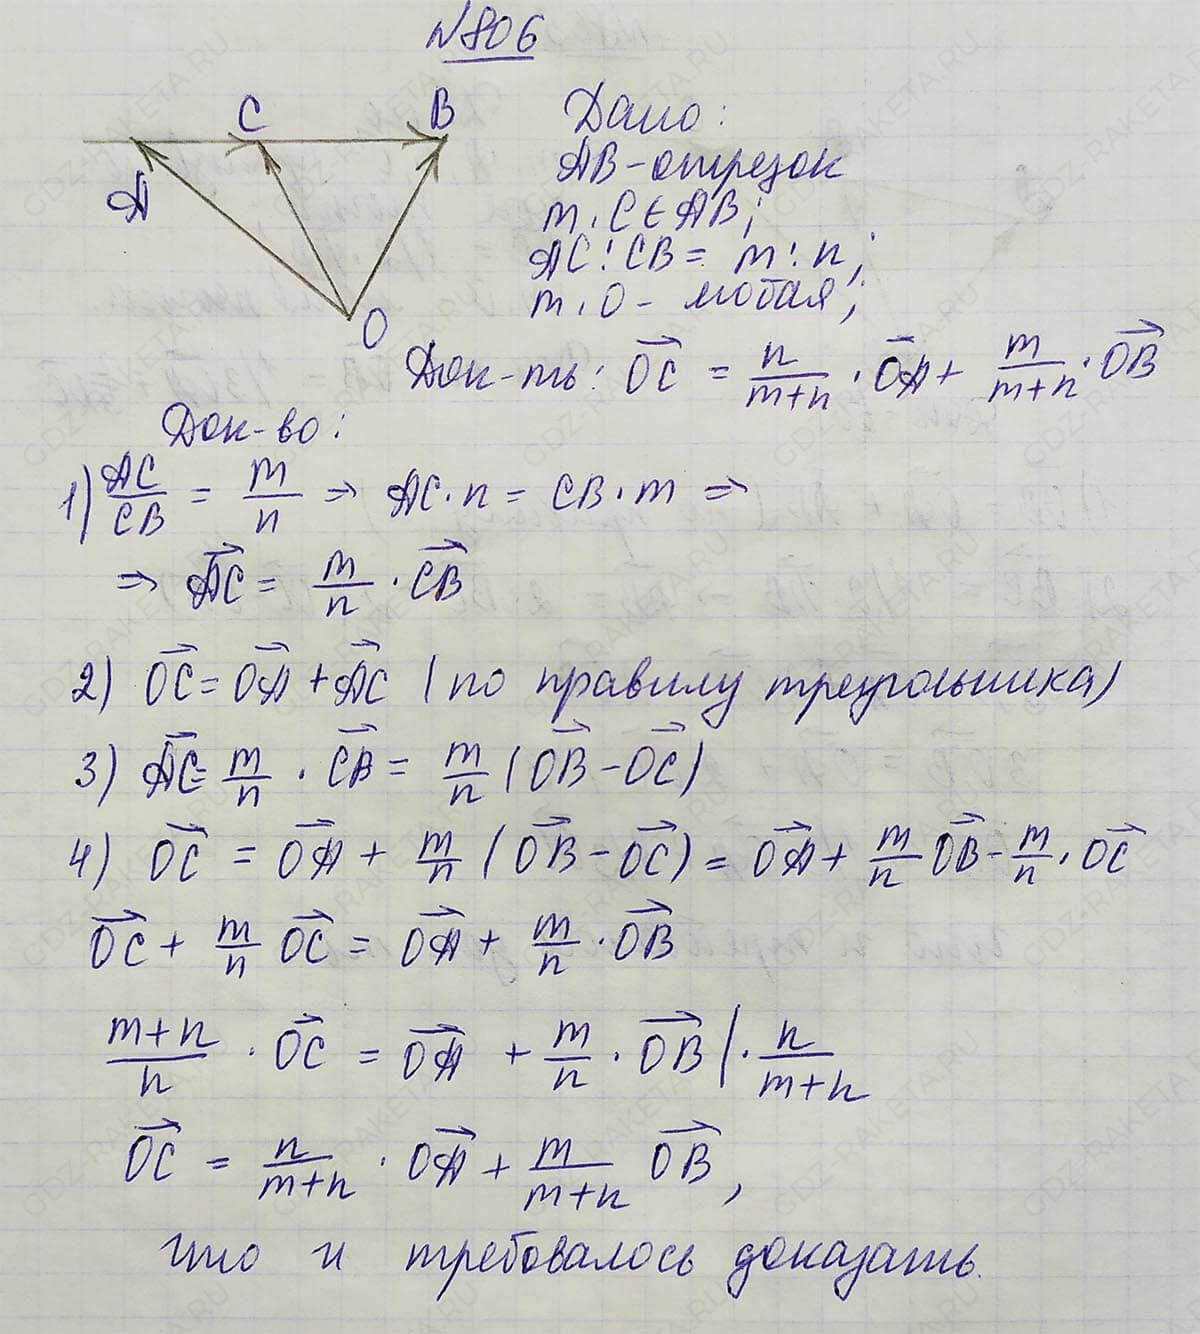 N806
C B
A
O
Дано:
AB - отрезок
т. C ∈ AB;
AC : CB = m : n;
т. O - любая;
Док-ть: \vec{OC} = \frac{n}{m+n} · \vec{OA} + \frac{m}{m+n} · \vec{OB}
Док-во:
1) \frac{AC}{CB} = \frac{m}{n} ⇒ AC · n = CB · m ⇒
⇒ \vec{AC} = \frac{m}{n} · \vec{CB}
2) \vec{OC} = \vec{OA} + \vec{AC} (по правилу треугольника)
3) \vec{AC} = \frac{m}{n} · \vec{CB} = \frac{m}{n} (\vec{OB} - \vec{OC})
4) \vec{OC} = \vec{OA} + \frac{m}{n} (\vec{OB} - \vec{OC}) = \vec{OA} + \frac{m}{n} \vec{OB} - \frac{m}{n} · \vec{OC}
\vec{OC} + \frac{m}{n} \vec{OC} = \vec{OA} + \frac{m}{n} · \vec{OB}
\frac{m+n}{n} · \vec{OC} = \vec{OA} + \frac{m}{n} · \vec{OB} | · \frac{n}{m+n}
\vec{OC} = \frac{n}{m+n} · \vec{OA} + \frac{m}{m+n} \vec{OB},
что и требовалось доказать.
GDZ-RAKETA.RU